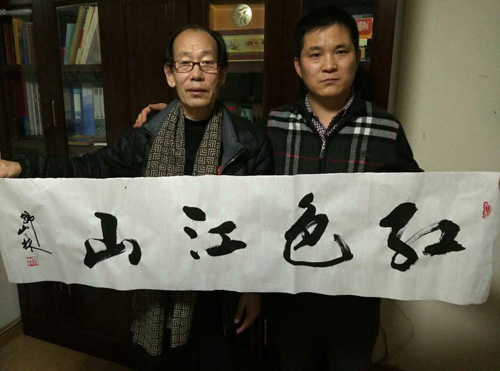 红色江山